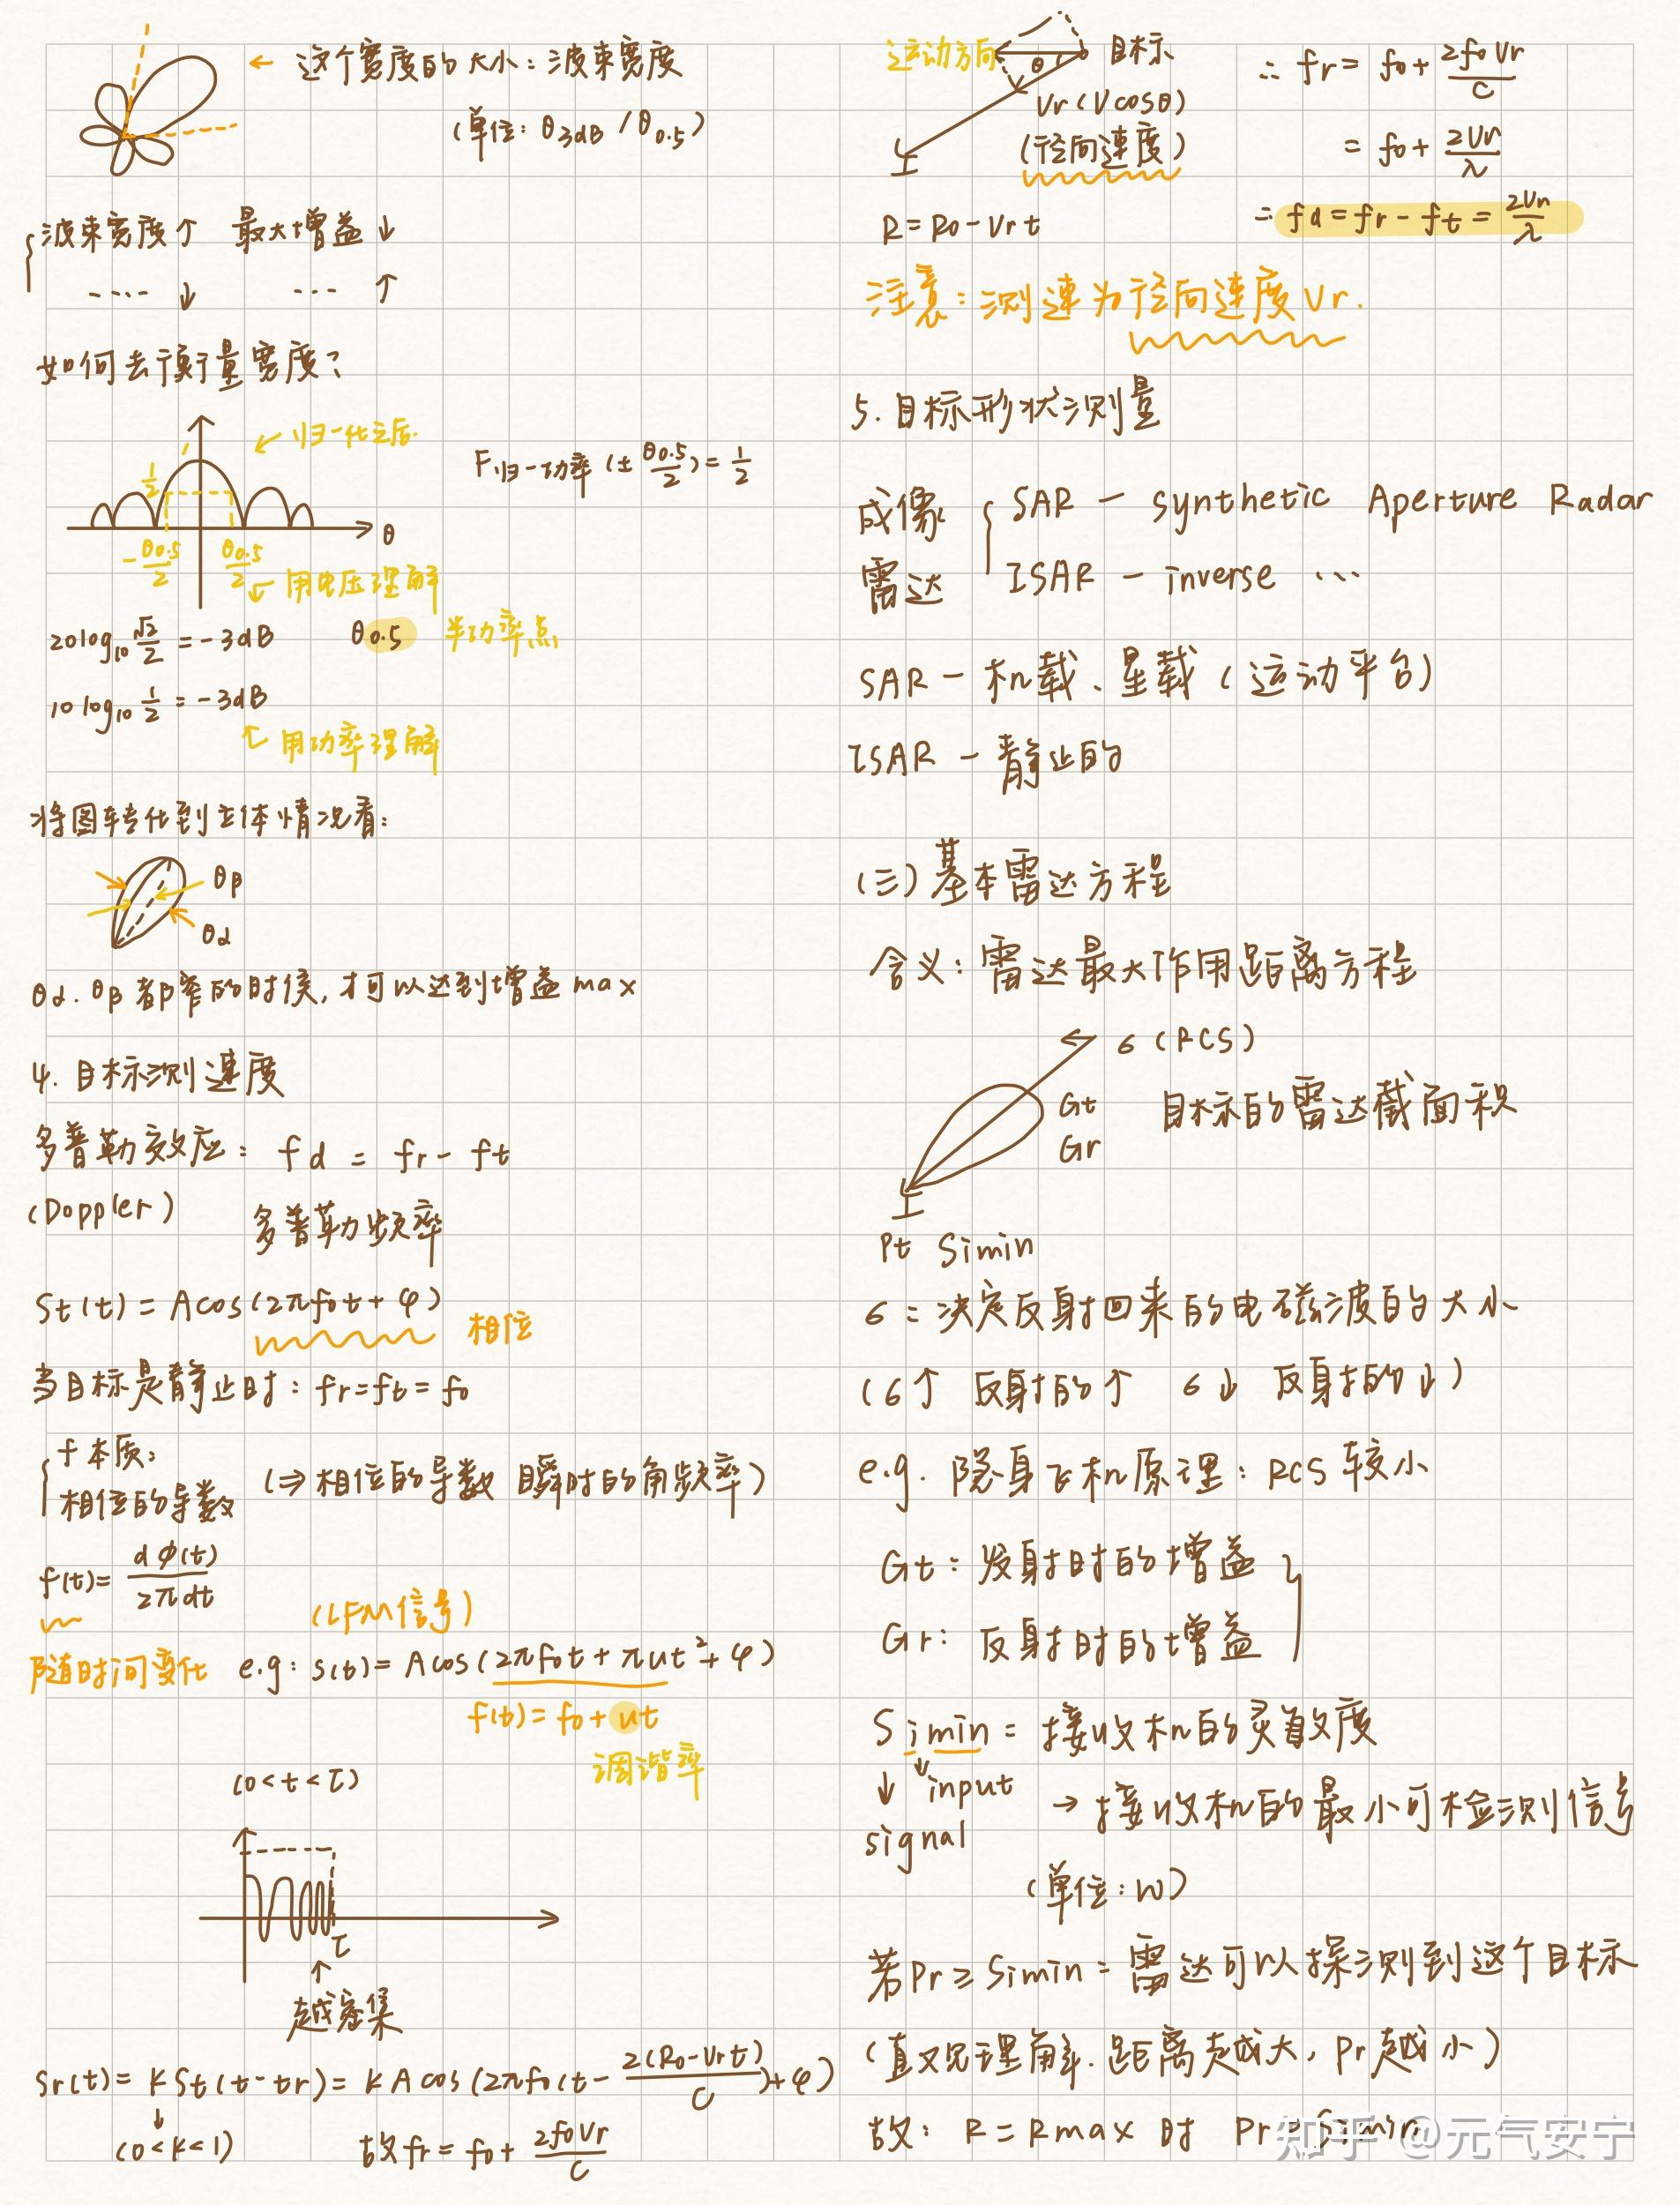 ← 这个宽度的大小：波束宽度
（单位：θ3dB / θ0.5）
波束宽度↑ 最大增益↓
···· ↓ ··· ↑
如何去衡量宽度？
← 归一化之后.
1/2
F归一功率 (± θ0.5/2) = 1/2
θ
-θ0.5/2 θ0.5/2
用电压理解
20log₁₀ √2/2 = -3dB θ0.5 半功率点
10log₁₀ 1/2 = -3dB
用功率理解
将图转化到立体情况看：
θβ
θα
θα. θβ都窄的时候, 才可以达到增益max
4. 目标测速度
多普勒效应：fd = fr - ft
(Doppler) 多普勒频率
St(t) = Acos(2πf₀t + φ) 相位
当目标是静止时：fr=ft=f₀
f本质：
相位的导数 (⇒相位的导数 瞬时的角频率)
f(t) = dϕ(t)/2πdt
(LFM信号)
随时间变化 e.g: s(t) = Acos(2πf₀t + πut² + φ)
f(t) = f₀ + ut
调谐率
(0<t<τ)
τ
↑
越密集
Sr(t) = KSt(t-tr) = KAcos(2πf₀(t - 2(R₀-Vrt)/C) + φ)
↓
(0<K<1) 故fr = f₀ + 2f₀Vr/C
运动方向 θ 目标
Vr (Vcosθ)
(径向速度)
R = R₀ - Vrt
∴ fr = f₀ + 2f₀Vr/C
= f₀ + 2Vr/λ
∴ fd = fr - ft = 2Vr/λ
注意：测速为径向速度Vr.
5. 目标形状测量
成像 SAR — synthetic Aperture Radar
雷达 ISAR — inverse ···
SAR — 机载、星载（运动平台）
ISAR — 静止的
(三) 基本雷达方程
含义：雷达最大作用距离方程
6 (RCS)
Gt 目标的雷达截面积
Gr
Pt Simin
6：决定反射回来的电磁波的大小
(6↑ 反射的↑ 6↓ 反射的↓)
e.g. 隐身飞机原理：RCS较小
Gt：发射时的增益
Gr：反射时的增益
Simin = 接收机的灵敏度
↓ ↓input → 接收机的最小可检测信号
signal
（单位：W）
若Pr ≥ Simin = 雷达可以探测到这个目标
(直观理解. 距离越大, Pr越小)
故：R = Rmax 时 Pr = Simin
知乎 @元气安宁